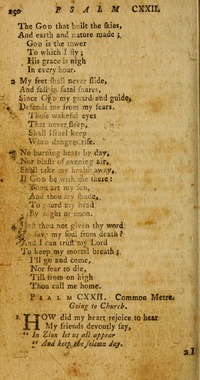 250 PSALM CXXII.
The GOD that built the skies,
And earth and nature made;
GOD is the tower
To which I fly;
His grace is nigh
In every hour.
2 My feet shall never slide,
And fall in fatal snares,
Since GOD my guard and guide,
Defends me from my fears.
Those wakeful eyes
That never sleep,
Shall Israel keep
When dangers rise.
No burning heats by day,
Nor blasts of evening air,
Shall take my health away,
If God be with me there:
Thou art my sun,
And thou my shade,
To guard my head
By night or noon.
Hast thou not given thy word
To save my soul from death?
And I can trust my Lord
To keep my mortal breath;
I'll go and come,
Nor fear to die,
Till from on high
Thou call me home.
PSALM CXXII. Common Metre.
Going to Church.
1 HOW did my heart rejoice to hear
My friends devoutly say,
"In Zion let us all appear
"And keep the solemn day.